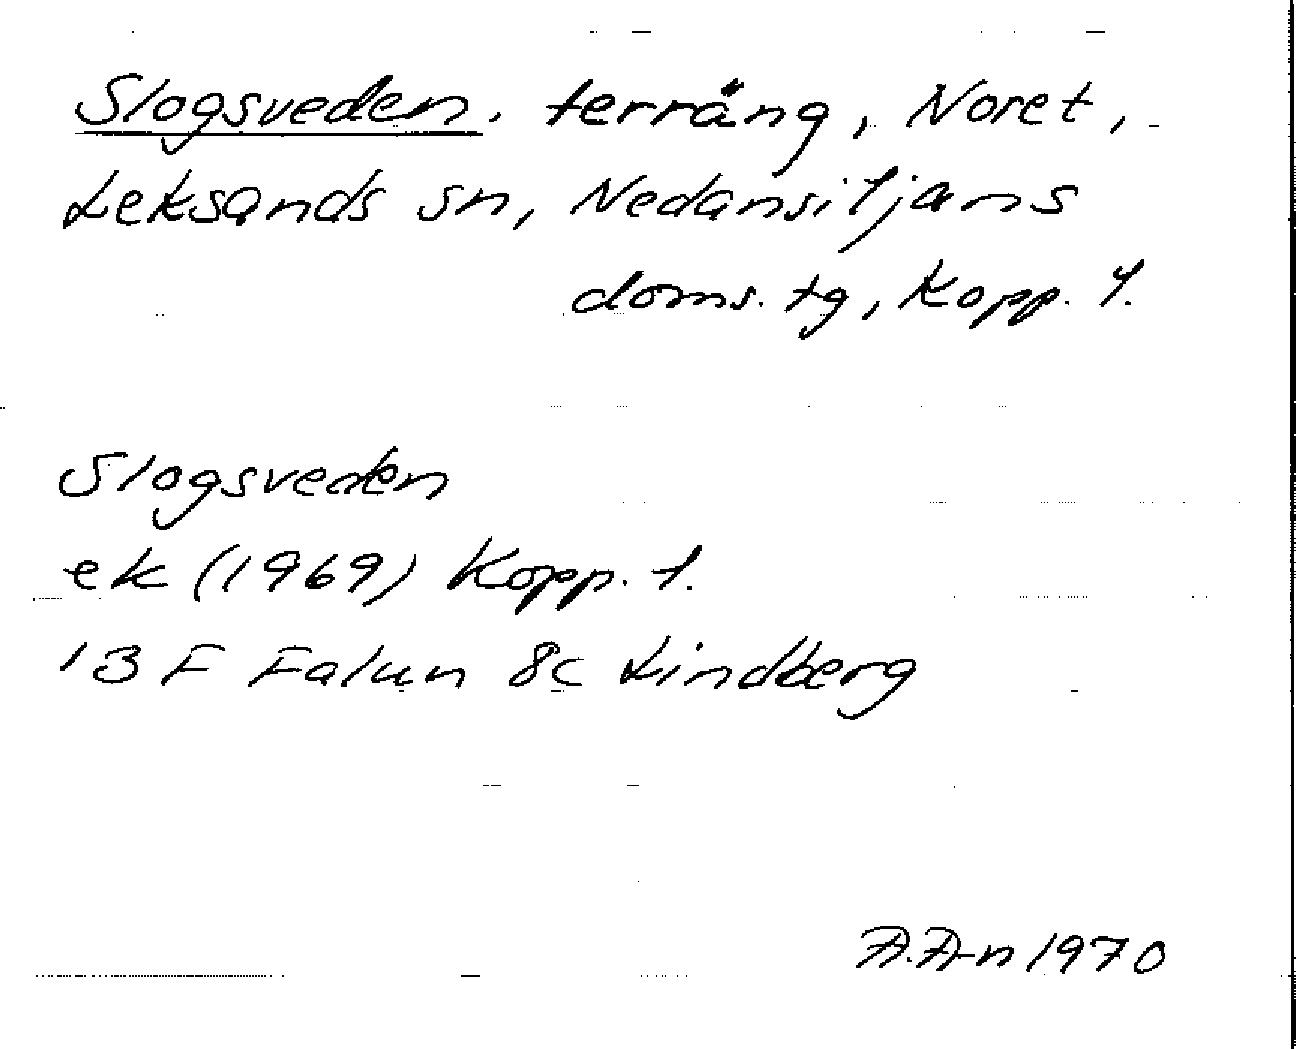 Slogsveden. terräng, Noret,
Leksands sn, Nedansiljans
doms. tg, Kopp. l.
Slogsveden
ek (1969) Kopp. l.
13 F Falun 8c Lindberg
A.A-n 1970